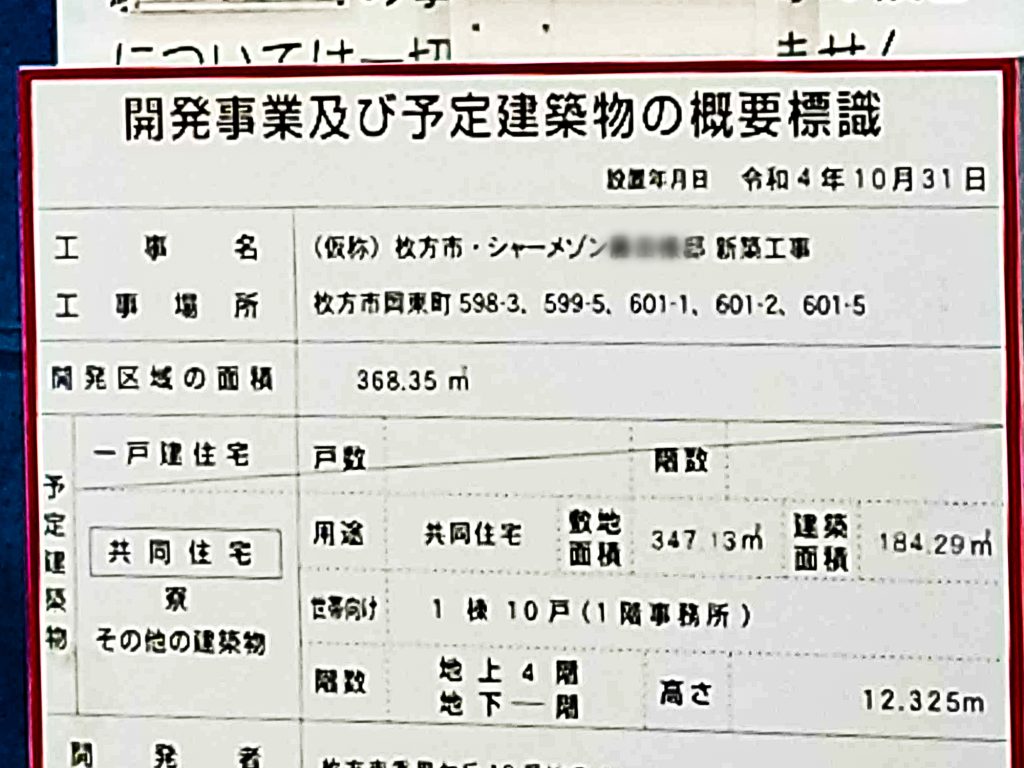 については一切
ません
開発事業及び予定建築物の概要標識
設置年月日 令和4年10月31日
工事名 (仮称) 枚方市・シャーメゾン 邸 新築工事
工事場所 枚方市岡東町598-3、599-5、601-1、601-2、601-5
開発区域の面積 368.35㎡
予定建築物
一戸建住宅 戸数 階数
共同住宅
寮
その他の建築物
用途 共同住宅 敷地面積 347.13㎡ 建築面積 184.29㎡
世帯向け 1棟10戸(1階事務所)
階数 地上4階
地下―階
高さ 12.325m
開発者